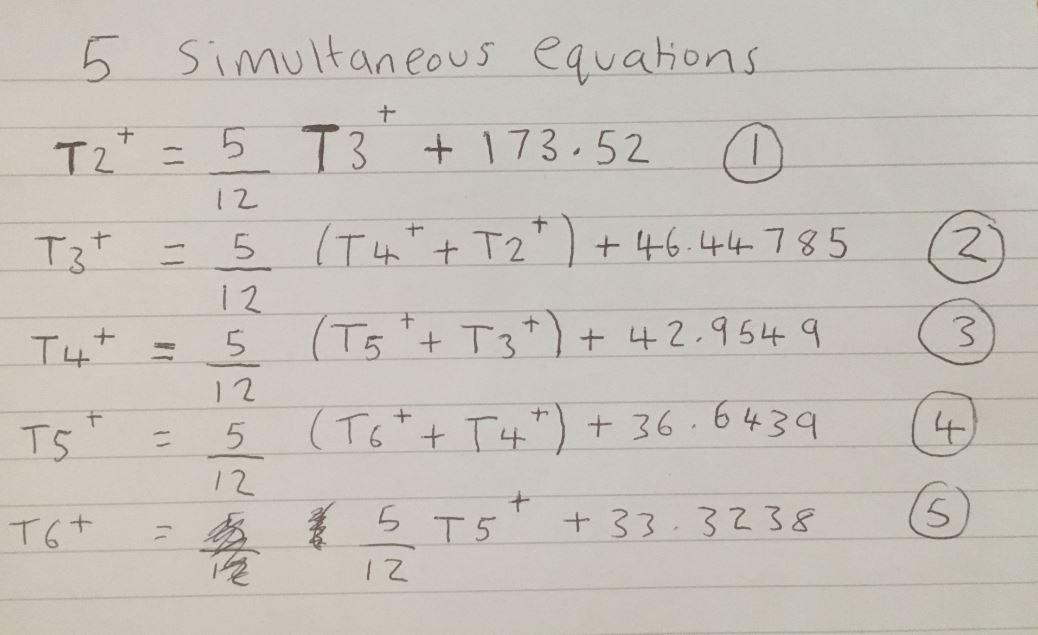 5 Simultaneous equations
T2⁺ = 5/12 T3⁺ + 173.52 ①
T3⁺ = 5/12 (T4⁺ + T2⁺) + 46.44785 ②
T4⁺ = 5/12 (T5⁺ + T3⁺) + 42.9549 ③
T5⁺ = 5/12 (T6⁺ + T4⁺) + 36.6439 ④
T6⁺ = 5/12 T5⁺ + 33.3238 ⑤